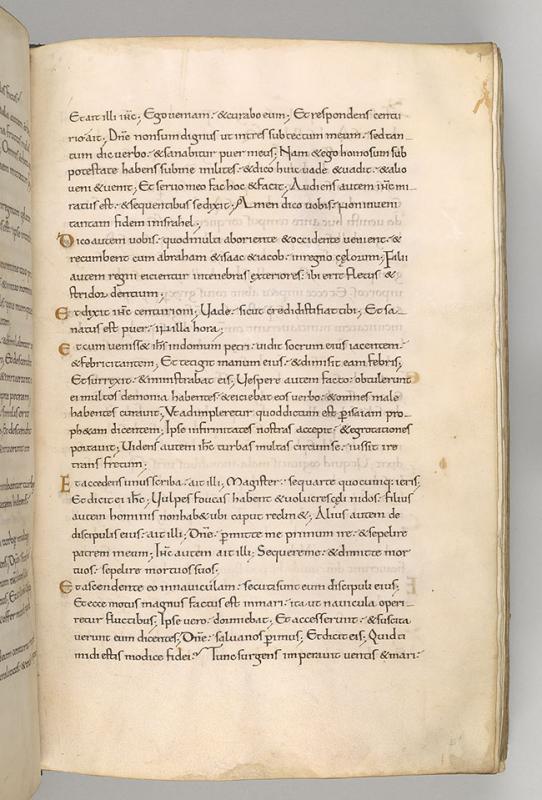 Et ait illi ihc; Ego ueniam. & curabo eum; Et respondens centu
rio ait; Dne non sum dignus ut intres sub tectum meum. sed tan
tum dic uerbo. & sanabitur puer meus; Nam & ego homo sum sub
potestate habens sub me milites. & dico huic uade & uadit. & alio
ueni & uenit; Et seruo meo fac hoc & facit; Audiens autem ihc mi
ratus est. & sequentibus se dixit; Amen dico uobis. non inueni
tantam fidem in israhel;
Dico autem uobis. quod multi ab oriente & occidente uenient. &
recumbent cum abraham & isaac & iacob. in regno cęlorum; Filii
autem regni eicientur in tenebras exteriores. ibi erit fletus &
stridor dentium;
Et dixit ihc centurioni; Uade. sicut credidisti fiat tibi; Et sa
natus est puer. in illa hora;
Et cum uenisset ihs in domum petri. uidit socrum eius iacentem.
& febricitantem; Et tetigit manum eius. & dimisit eam febris;
Et surrexit. & ministrabat eis; Uespere autem facto. obtulerunt
ei multos demonia habentes. & eiciebat eos uerbo. & omnes male
habentes curauit; Ut adimpleretur quod dictum est p isaiam pro
ph&am dicentem; Ipse infirmitates nostras accepit. & egrotationes
portauit; Uidens autem ihc turbas multas circum se. iussit ire
trans fretum;
Et accedens unus scriba. ait illi; Magister. sequar te quocunque ieris;
Et dicit ei ihc; Uulpes foueas habent & uolucres cęli nidos. filius
autem hominis non hab& ubi caput reclin&; Alius autem de
discipulis eius. ait illi; Dne. pmitte me primum ire. & sepelire
patrem meum; Ihc autem ait illi; Sequere me. & dimitte mor
tuos. sepelire mortuos suos;
Et ascendente eo in nauiculam. secuti sunt eum discipuli eius;
Et ecce motus magnus factus est in mari. ita ut nauicula operi
retur fluctibus; Ipse uero. dormiebat; Et accesserunt. & suscita
uerunt eum dicentes; Dne. salua nos perimus; Et dicit eis; Quid ti
midi estis modice fidei? Tunc surgens imperauit uentis & mari.